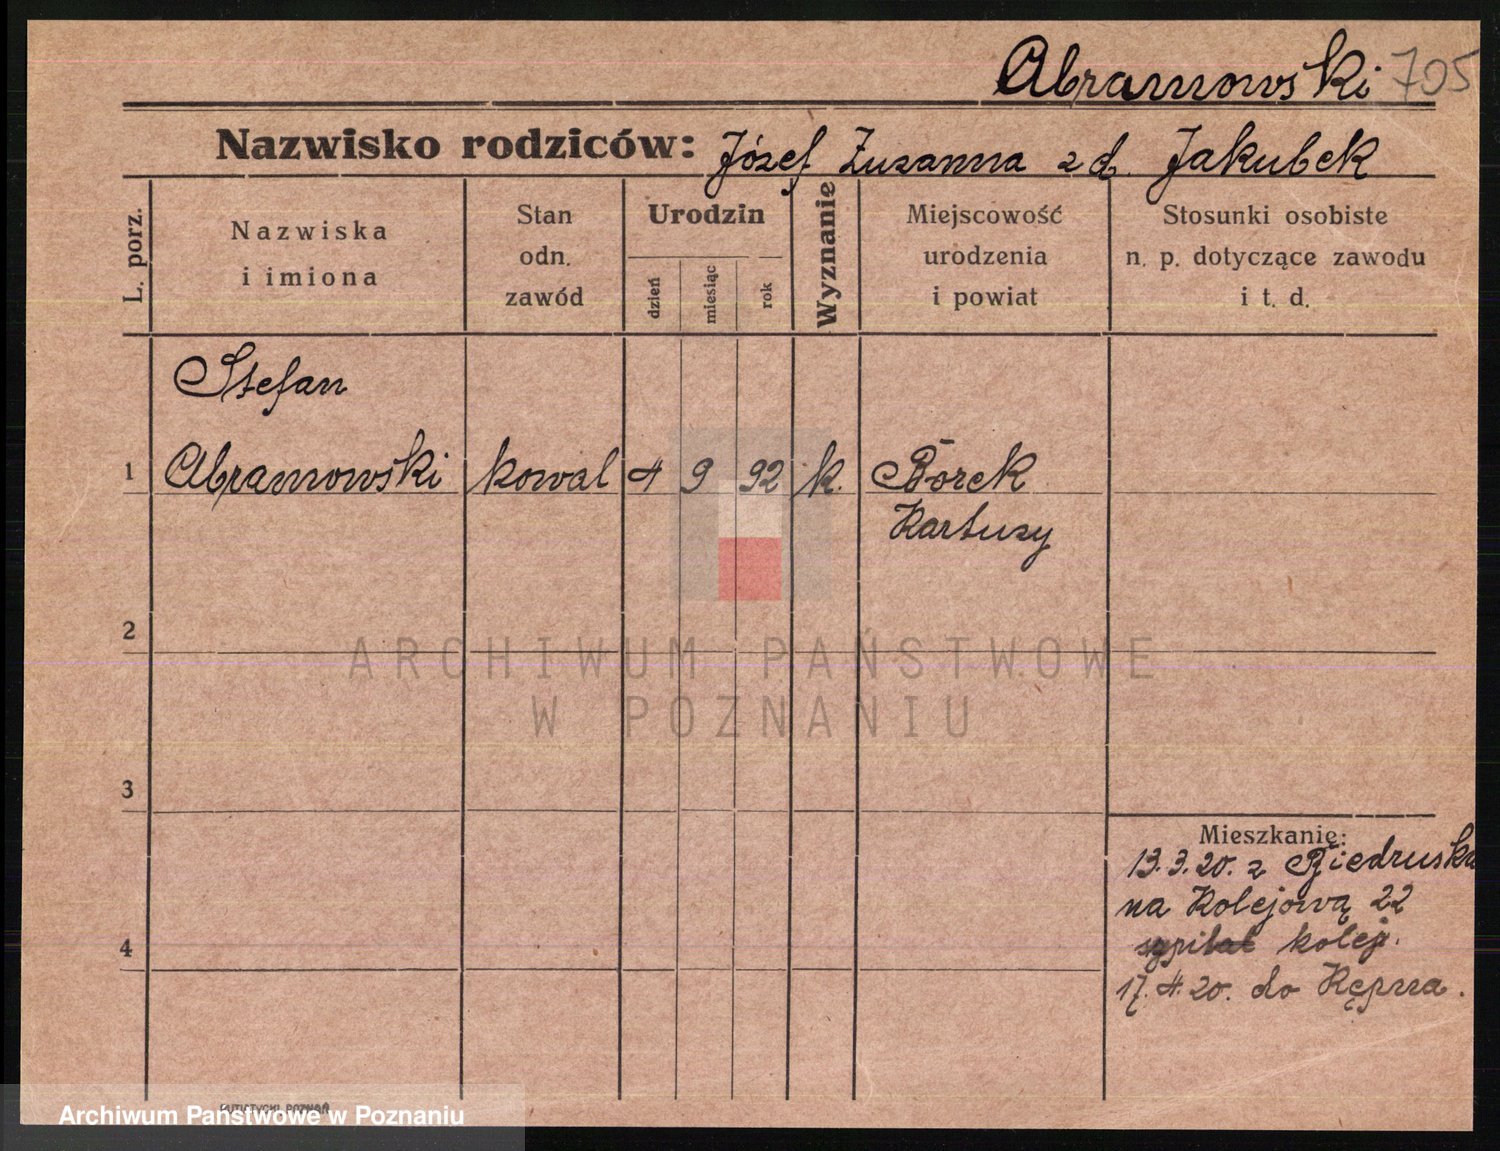 Abramowski 705
Nazwisko rodziców: Józef Zuzanna z d. Jakubek
L. porz.
Nazwiska
i imiona
Stan
odn.
zawód
Urodzin
dzień
miesiąc
rok
Wyznanie
Miejscowość
urodzenia
i powiat
Stosunki osobiste
n. p. dotyczące zawodu
i t. d.
Stefan
1 Abramowski kowal 4 9 92 k. Borek
Kartuzy
2
ARCHIWUM PAŃSTWOWE
W POZNANIU
3
Mieszkanie:
13.3.20. z Biedruska
na Kolejową 22
szpital kolej.
4
17.4.20. do Kępna.
Archiwum Państwowe w Poznaniu